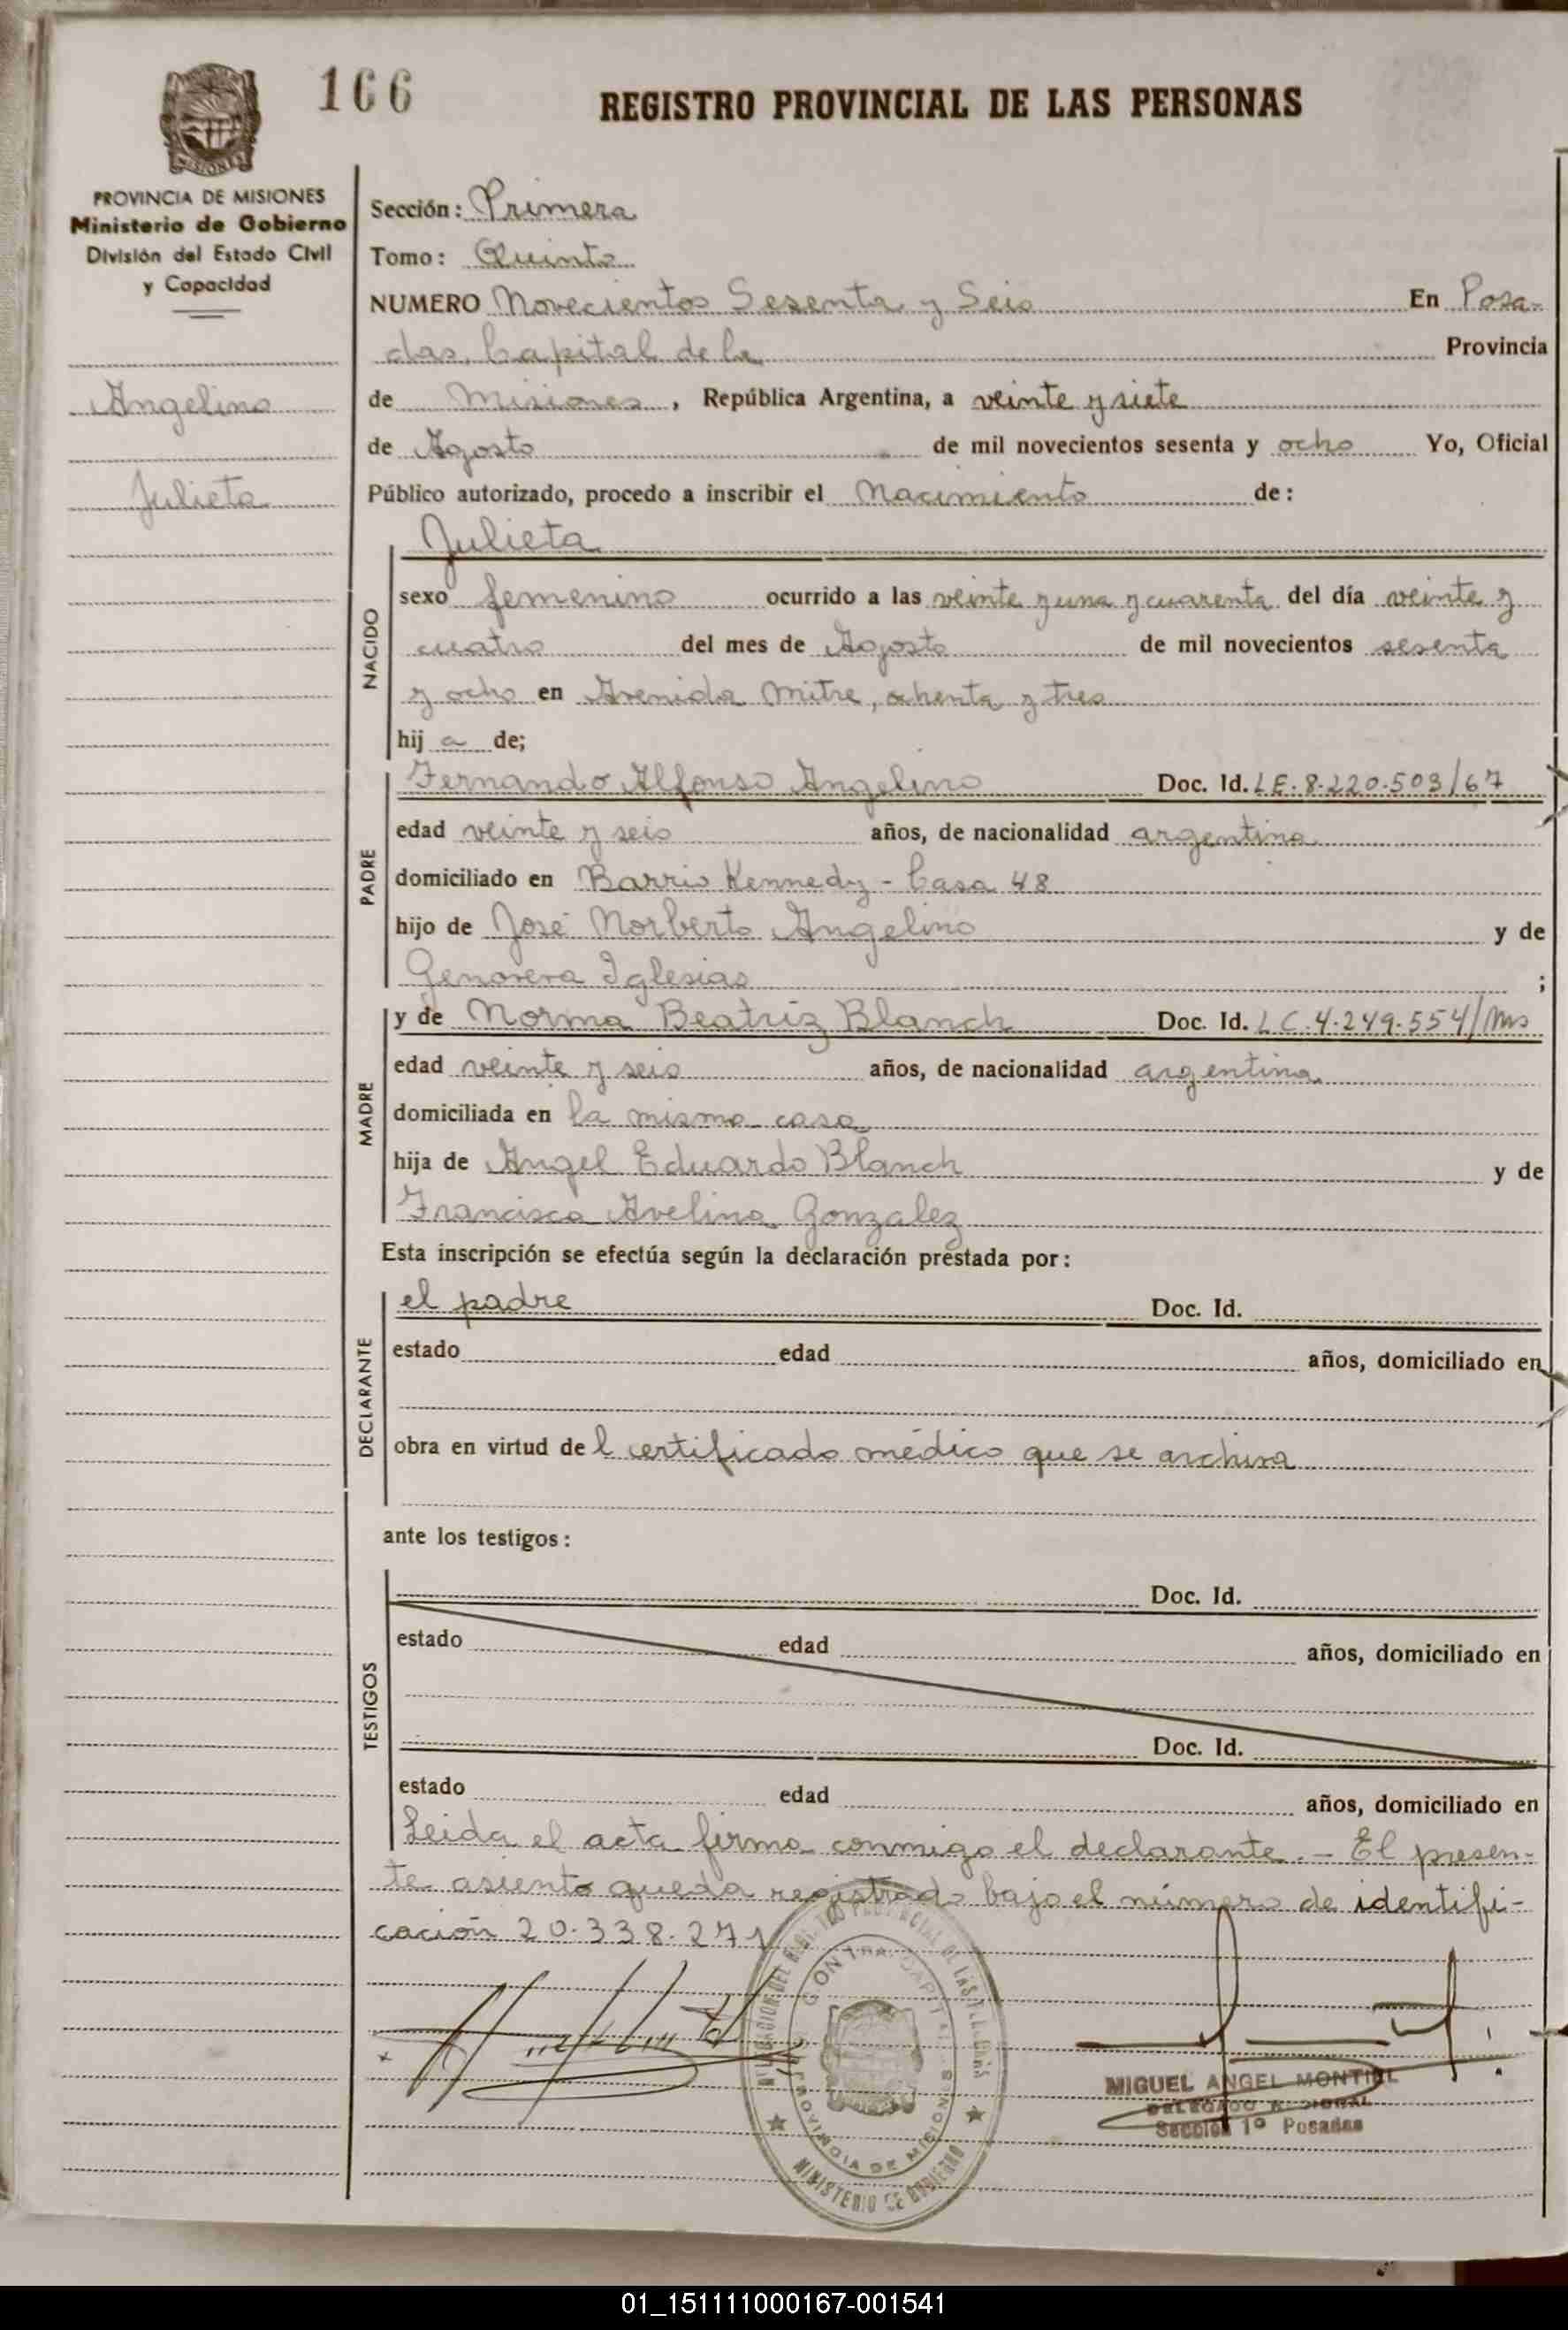 166
REGISTRO PROVINCIAL DE LAS PERSONAS
MISIONES
PROVINCIA DE MISIONES
Ministerio de Gobierno
División del Estado Civil
y Capacidad
Angelino
Julieta
Sección: Primera
Tomo: Quinto
NUMERO Novecientos Sesenta y Seis En Posa-
das, Capital de la Provincia
de Misiones, República Argentina, a veinte y siete
de Agosto de mil novecientos sesenta y ocho Yo, Oficial
Público autorizado, procedo a inscribir el Nacimiento de:
Julieta
NACIDO
sexo femenino ocurrido a las veinte y una y cuarenta del día veinte y
cuatro del mes de Agosto de mil novecientos sesenta
y ocho en Avenida Mitre, ochenta y tres
hija de;
PADRE
Fernando Alfonso Angelino Doc. Id. L E. 8.220.503/67
edad veinte y seis años, de nacionalidad argentina
domiciliado en Barrio Kennedy - Casa 48
hijo de José Norberto Angelino y de
Genovera Iglesias ;
MADRE
y de Norma Beatriz Blanch Doc. Id. L C. 4.249.554/Mns
edad veinte y seis años, de nacionalidad argentina
domiciliada en la misma casa
hija de Angel Eduardo Blanch y de
Francisca Avelina Gonzalez
Esta inscripción se efectúa según la declaración prestada por:
DECLARANTE
el padre Doc. Id.
estado edad años, domiciliado en
obra en virtud del certificado médico que se archiva
ante los testigos:
TESTIGOS
Doc. Id.
estado edad años, domiciliado en
Doc. Id.
estado edad años, domiciliado en
Leida el acta firma conmigo el declarante. - El presen-
te asiento queda registrado bajo el número de identifi-
cación 20.338.271
PROVINCIA DE MISIONES
MINISTERIO DE GOBIERNO
MIGUEL ANGEL MONTIEL
DELEGADO
Sección 1º Posadas
01_151111000167-001541